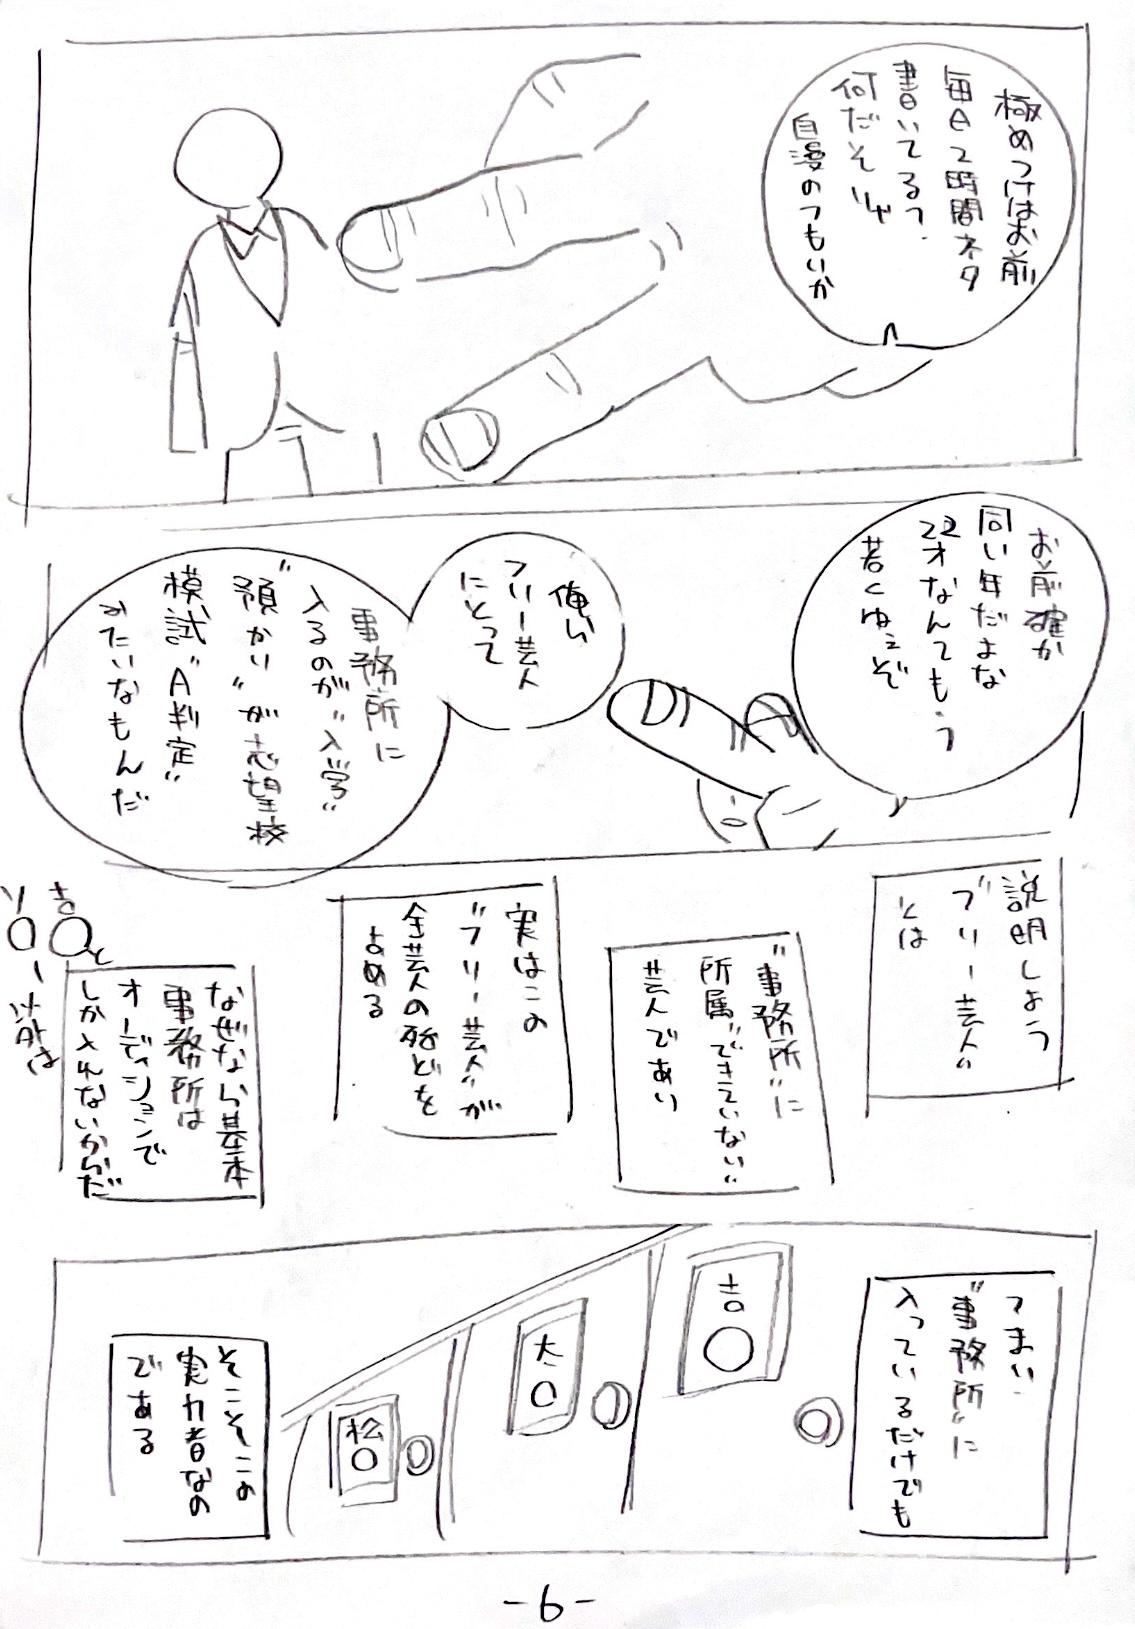 極めつけはお前
毎日2時間ネタ
書いてる?
何だそりゃ
自慢のつもりか
お前確か
同い年だよな
22才なんてもう
若くねぇぞ
俺らフ
フリー芸人
にとって
事務所に
入るのが"入学"
"預かり"が志望校
模試"A判定"
みたいなもんだ
説明しよう
"フリー芸人"
とは
"事務所"に
所属"できていない"
芸人であり
実はこの
"フリー芸人"が
全芸人の殆どを
占める
なぜなら基本
事務所は
オーディションで
しか入れないからだ
吉〇と
ソ〇ー以外は
つまり
"事務所"に
入っているだけでも
吉〇
太〇
松〇
そこそこの
実力者なの
である
-6-